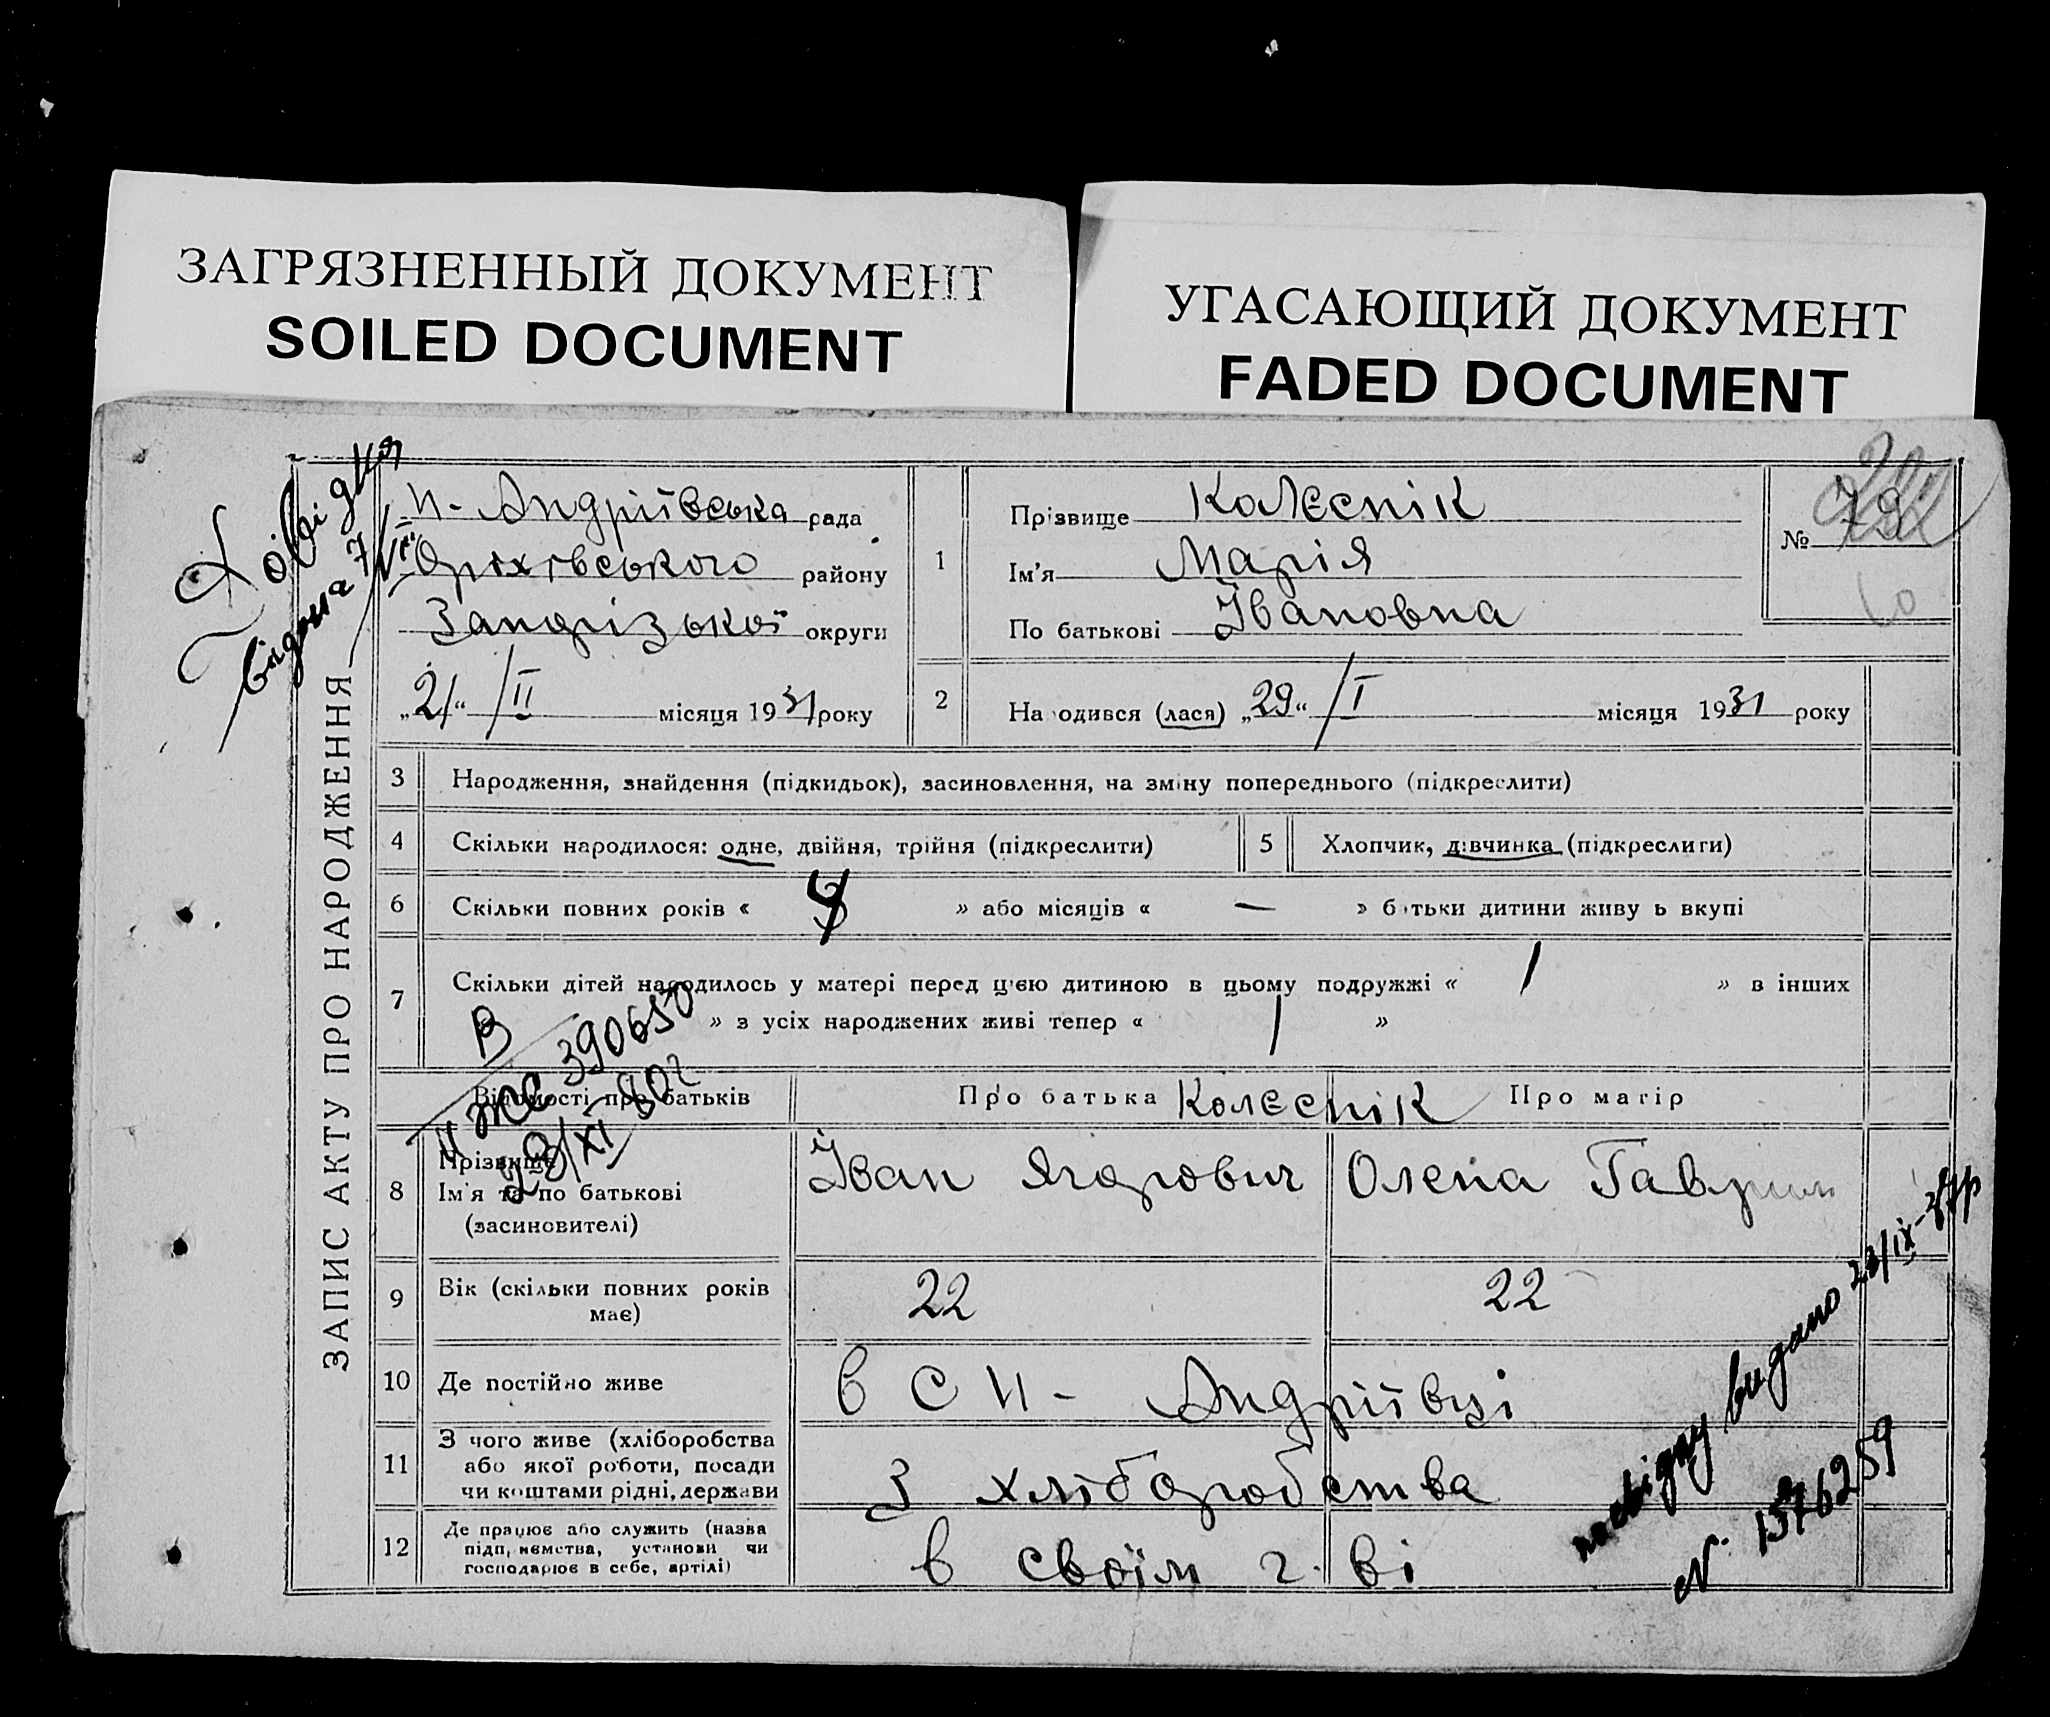 ЗАГРЯЗНЕННЫЙ ДОКУМЕНТ
SOILED DOCUMENT
УГАСАЮЩИЙ ДОКУМЕНТ
FADED DOCUMENT
Довідка
видана 7/VІІ
ЗАПИС АКТУ ПРО НАРОДЖЕННЯ
Н-Андріївська рада
Оріхівського району
Запорізької округи
„21“ /II місяця 1931 року
1
Прізвище Колєснік
Ім'я Марія
По батькові Івановна
№ 79
2
На одився (лася) „29“ /I місяця 1931 року
3 Народження, знайдення (підкидьок), засиновлення, на зміну попереднього (підкреслити)
4 Скільки народилося: одне, двійня, трійня (підкреслити)
5 Хлопчик, дівчинка (підкреслити)
6 Скільки повних років « » або місяців « — » батьки дитини живу ь вкупі
7 Скільки дітей народилось у матері перед цією дитиною в цьому подружжі « 1 » в інших
» з усіх народжених живі тепер « 1 »
В
ІІ ЖС 390650
23/XI 80г
Відомості про батьків
Про батька Колєснік Про матір
8 Прізвище
Ім'я та по батькові
(засиновителі)
Іван Ягорович
Олена Гаврил
9 Вік (скільки повних років
має)
22
22
10 Де постійно живе
в с Н-Андріївці
11 З чого живе (хліборобства
або якої роботи, посади
чи коштами рідні, держави
З хліборобства
12 Де працює або служить (назва
підп, иємства, установи чи
господарює в себе, артілі)
в своїм г. ві
видано 23/ІХ
№ 1376259